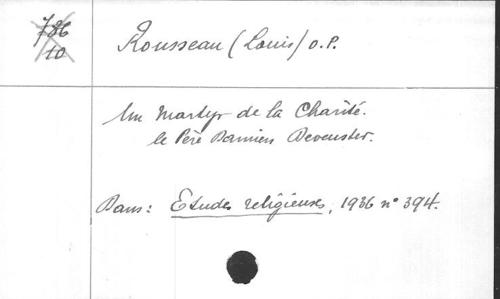 786
10
Rousseau (Louis) O.P.
Un Martyr de la Charité.
le Père Damien Deveuster.
Dans: Etudes religieuses, 1936 n° 394.